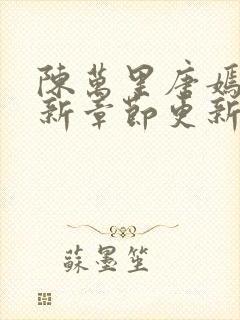 陳萬里唐嫣
新章節更新
蘇墨笙